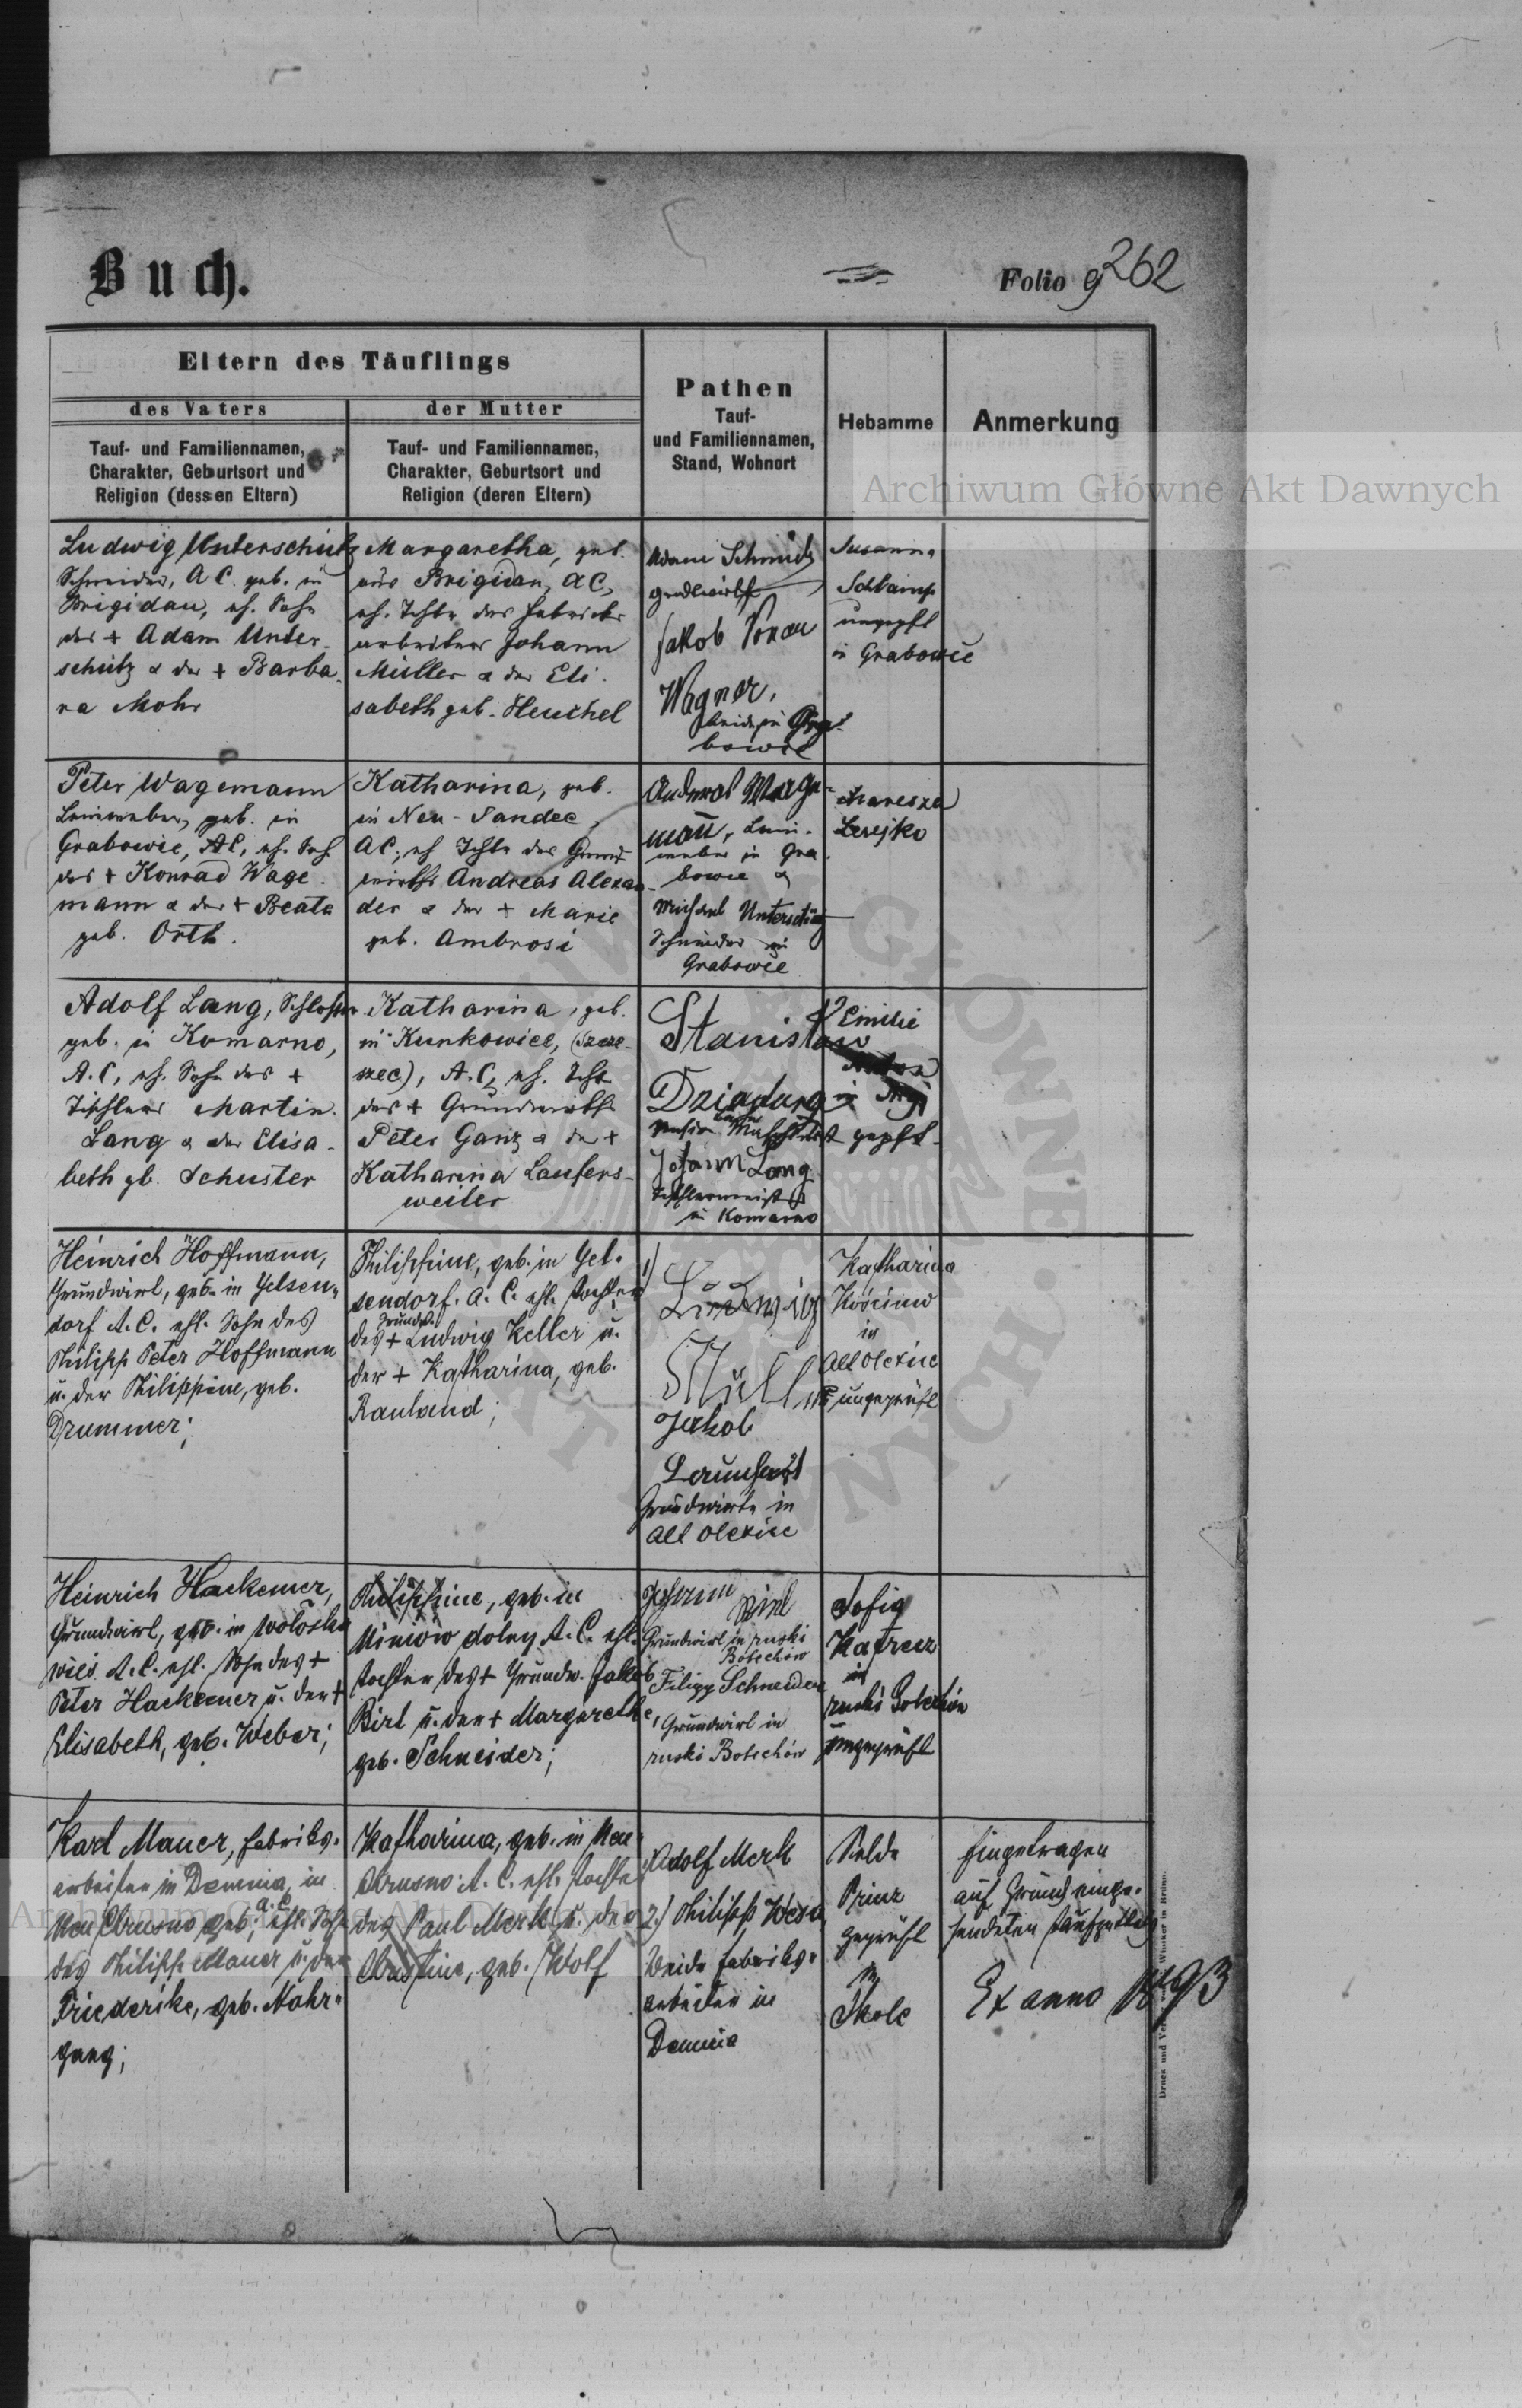 Buch.
Folio 9 262
Eltern des Täuflings
des Vaters
der Mutter
Tauf- und Familiennamen,
Charakter, Geburtsort und
Religion (dessen Eltern)
Tauf- und Familiennamen,
Charakter, Geburtsort und
Religion (deren Eltern)
Pathen
Tauf-
und Familiennamen,
Stand, Wohnort
Hebamme
Anmerkung
Archiwum Główne Akt Dawnych
Ludwig Unterschütz
Schneider, A C. geb. in
Brigidau, eh. Sohn
des + Adam Unter-
schütz & der + Barba-
ra Mohr
Margaretha, geb.
aus Brigidau, AC,
eh. Tcht. des Fabriks-
arbeiters Johann
Müller & der Eli-
sabeth geb. Heuchel
Adam Schmidt
Grundwirth
Jakob
Wagner,
beide in Gra-
bowce
Susanna
ungepft
in Grabowce
Peter Wagemann
Leinweber, geb. in
Grabowce, AC, eh. Sohn
des + Konrad Wage-
mann & der + Beata
geb. Orth.
Katharina, geb.
in Neu-Sandec,
AC, eh Tcht. des Grund-
wirths Andreas Alexan-
der & der + Marie
geb. Ambrosi
Andreas Wage-
mann, Lein-
weber in Gra-
bowce &
Michael Unterschütz
Schneider in
Grabowce
Lesejko
Adolf Lang, Schlosser
geb. in Komarno,
A.C, eh. Sohn des +
Tischlers Martin
Lang & der Elisa-
beth gb. Schuster
Katharina, geb.
in Kunkowice, (Szcze-
rzec), A.C, eh. Tcht
des + Grundwirths
Peter Ganz & der +
Katharina Laufers-
weiler
Stanisław
Johann Lang
Tischlermeister
in Komarno
Emilie
gepft.
Heinrich Hoffmann,
Grundwirt, geb. in Gelsen-
dorf A.C. ehl. Sohn des
Philipp Peter Hoffmann
u. der Philippine, geb.
Drummer;
Philippine, geb. in Gel-
sendorf. A. C. ehl. Tochter
des + Grundw. Ludwig Keller u.
der + Katharina, geb.
Rauland;
1)
Ludwig
Müller
Jakob
Grundwirte in
Alt Olexice
Katharina
Kościuw
in
Alt Olexice
ungeprüft
Heinrich Hackemer,
Grundwirt, geb. in Wołoska
wieś A.C. ehl. Sohn des +
Peter Hackemer u. der +
Elisabeth, geb. Weber;
Philippine, geb. in
Uniów dolny A.C. ehl.
Tochter des + Grundw. Jakob
Birl u. der + Margarethe,
geb. Schneider;
Johann Birl
Grundwirt in ruski
Bolechów
Filipp Schneider
Grundwirt in
ruski Bolechów
Sofia
in
ruski Bolechów
ungeprüft
Karl Mauer, Fabriks-
arbeiter in Demnia, in
Neu Chrusno geb., a.C. ehl. Sohn
des Philipp Mauer u. der
Friederike, geb. Nahr-
gang;
Katharina, geb. in Neu
Chrusno A. C. ehl. Tochter
des Paul Merk u. der
Christine, geb. Wolf
Adolf Merk
2.) Philipp
Beide Fabriks-
arbeiter in
Demnia
Prinz
geprüft
in
Skole
Eingetragen
auf Grund einge-
sendeten
Ex anno 1893
Archiwum Główne Akt Dawnych